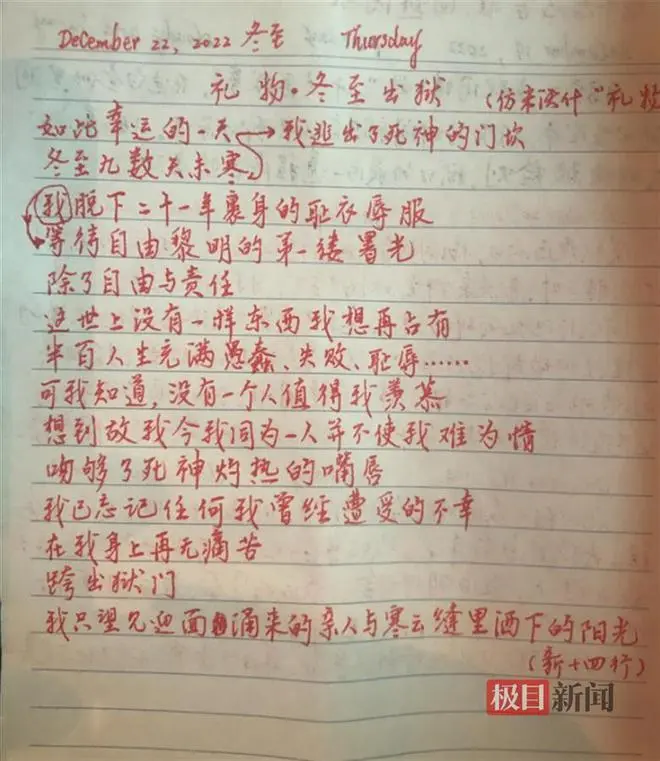 December 22, 2022 冬至 Thursday
礼物·冬至出狱 (仿米沃什"礼物
如此幸运的一天 我逃出了死神的门坎
冬至九数天未寒
我脱下二十一年裹身的耻衣辱服
等待自由黎明的第一缕署光
除了自由与责任
这世上没有一样东西我想再占有
半百人生充满愚蠢、失败、耻辱……
可我知道,没有一个人值得我羡慕
想到故我今我同为一人并不使我难为情
吻够了死神灼热的嘴唇
我已忘记任何我曾经遭受的不幸
在我身上再无痛苦
跨出狱门
我只望见迎面涌来的亲人与寒云缝里洒下的阳光
(新十四行)
极目新闻